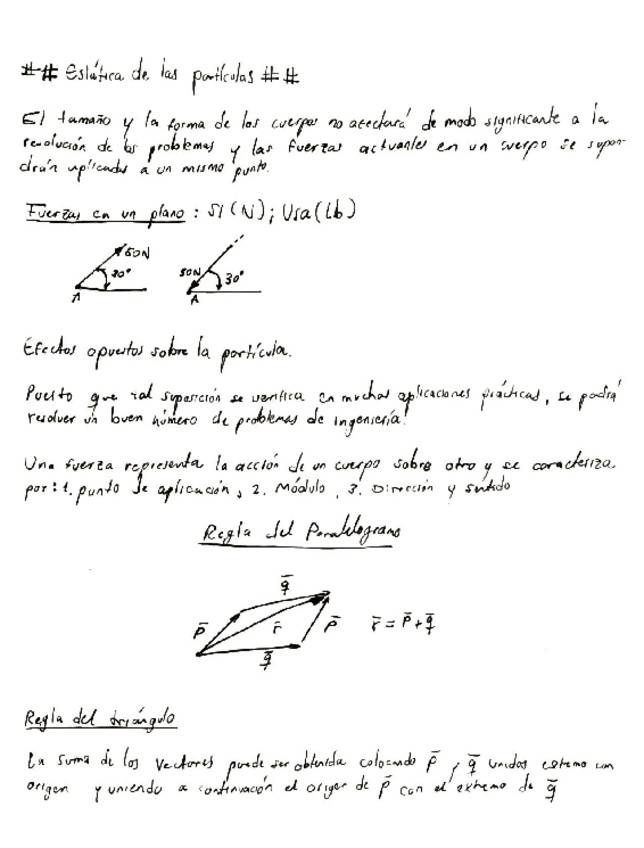 ## Estática de las partículas ##
El tamaño y la forma de los cuerpos no afectará de modo significante a la
resolución de los problemas y las fuerzas actuantes en un cuerpo se supon
drán aplicadas a un mismo punto.
Fuerzas en un plano : SI (N) ; Usa (Lb)
50N
30°
A
50N
30°
A
Efectos opuestos sobre la partícula.
Puesto que tal suposición se verifica en muchas aplicaciones prácticas, se podrá
resolver un buen número de problemas de ingeniería.
Una fuerza representa la acción de un cuerpo sobre otro y se caracteriza
por : 1. punto de aplicación, 2. Módulo, 3. Dirección y sentido
Regla del Paralelogramo
q̄
p̄ r̄ p̄ r̄ = p̄ + q̄
q̄
Regla del triángulo
La suma de los vectores puede ser obtenida colocando p̄ y q̄ unidos extremo con
origen y uniendo a continuación el origen de p̄ con el extremo de q̄